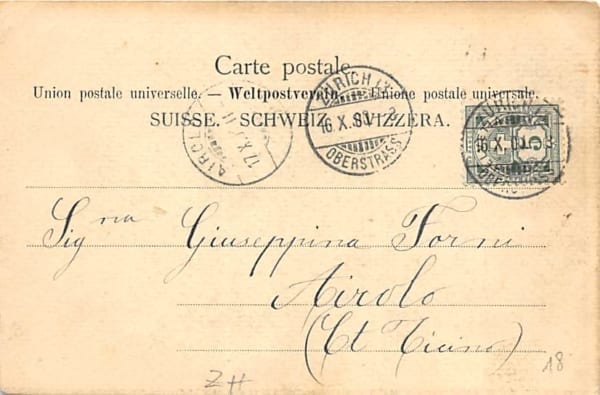 Carte postale.
Union postale universelle. — Weltpostverein. — Unione postale universale.
SUISSE. SCHWEIZ. SVIZZERA.
ZÜRICH
16. X.
OBERSTRASS
AIROLO
17. X.
16. X.
5
Sig ria Giuseppina Forni
Airolo
(Ct Ticino)
ZH
18